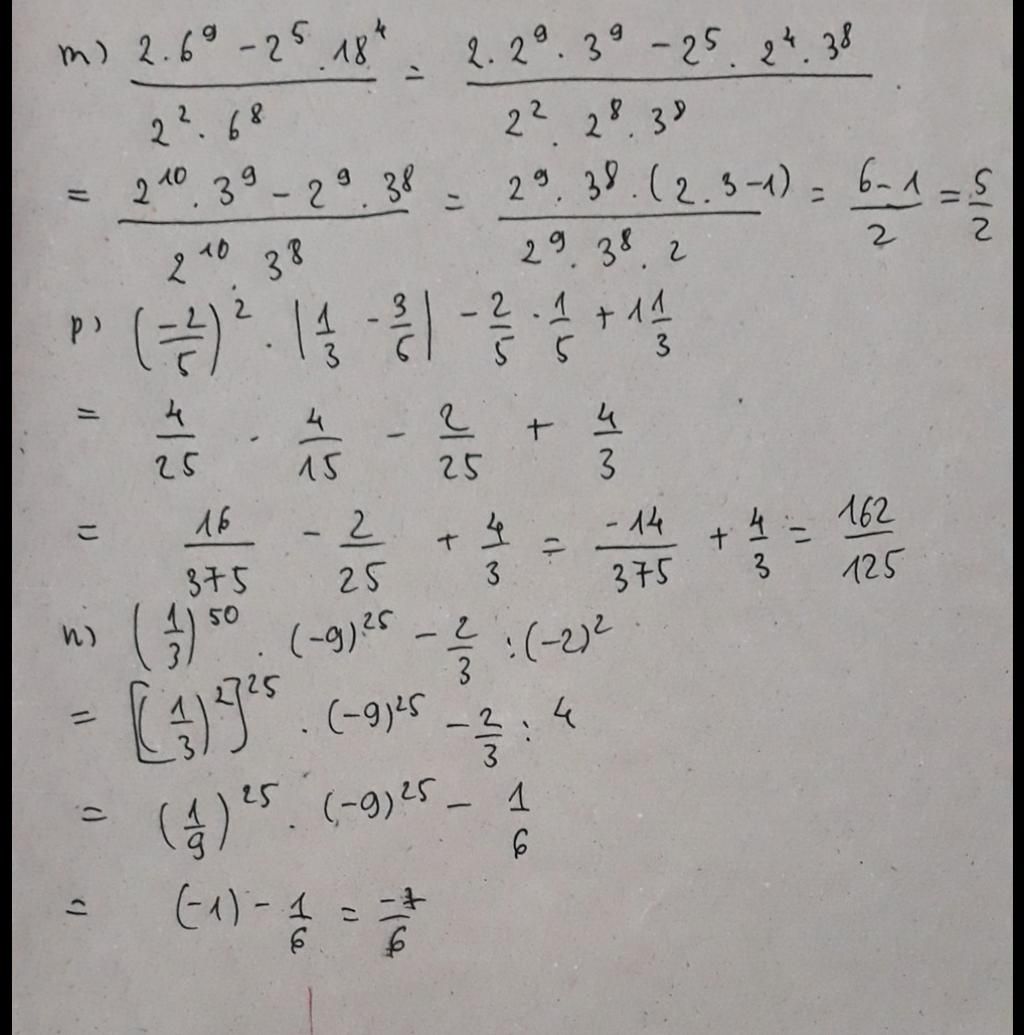 m) (2.6⁹ - 2⁵.18⁴)/(2².6⁸) = (2.2⁹.3⁹ - 2⁵.2⁴.3⁸)/(2².2⁸.3⁸)
= (2¹⁰.3⁹ - 2⁹.3⁸)/(2¹⁰.3⁸) = (2⁹.3⁸.(2.3-1))/(2⁹.3⁸.2) = (6-1)/2 = 5/2
p) (-2/5)² . |1/3 - 3/5| - 2/5 . 1/5 + 1 1/3
= 4/25 . 4/15 - 2/25 + 4/3
= 16/375 - 2/25 + 4/3 = -14/375 + 4/3 = 162/125
n) (1/3)⁵⁰ . (-9)²⁵ - 2/3 : (-2)²
= [(1/3)²]²⁵ . (-9)²⁵ - 2/3 : 4
= (1/9)²⁵ . (-9)²⁵ - 1/6
= (-1) - 1/6 = -7/6